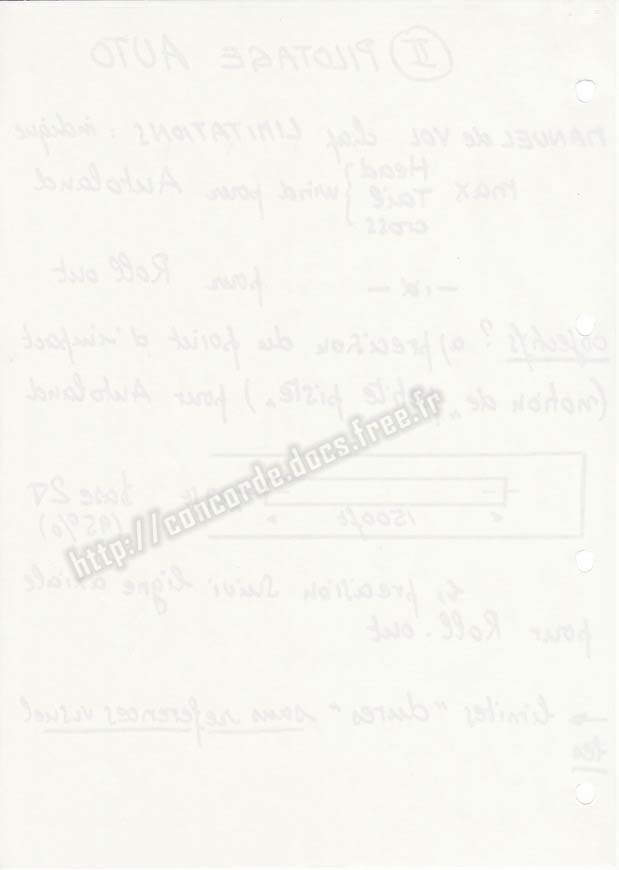 II PILOTAGE AUTO
MANUEL de VOL chap LIMITATIONS : indique
max { Head Tail cross } wind pour Autoland
— id — pour Roll out
objectifs ? a) precision du point d'impact
(notion de "pste piste") pour Autoland
base 2σ
1500ft (95%)
b, precision suivi ligne axiale
pour Roll-out
→ limites "dures" sans references visuel
les
http://concorde.docs.free.fr